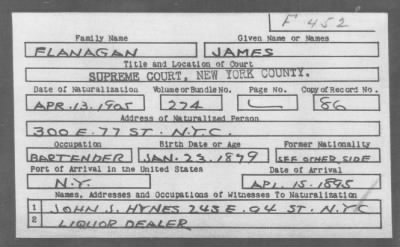 F 452
Family Name Given Name or Names
FLANAGAN JAMES
Title and Location of Court
SUPREME COURT, NEW YORK COUNTY.
Date of Naturalization Volume or Bundle No. Page No. Copy of Record No.
APR. 13. 1905 274 86
Address of Naturalized Person
300 E. 77 ST. N.Y.C.
Occupation Birth Date or Age Former Nationality
BARTENDER JAN. 23. 1879 SEE OTHER SIDE
Port of Arrival in the United States Date of Arrival
N.Y. APL. 15. 1895
Names, Addresses and Occupations of Witnesses To Naturalization
1 JOHN J. HYNES 245 E. 94 ST. N.Y.C
2 LIQUOR DEALER